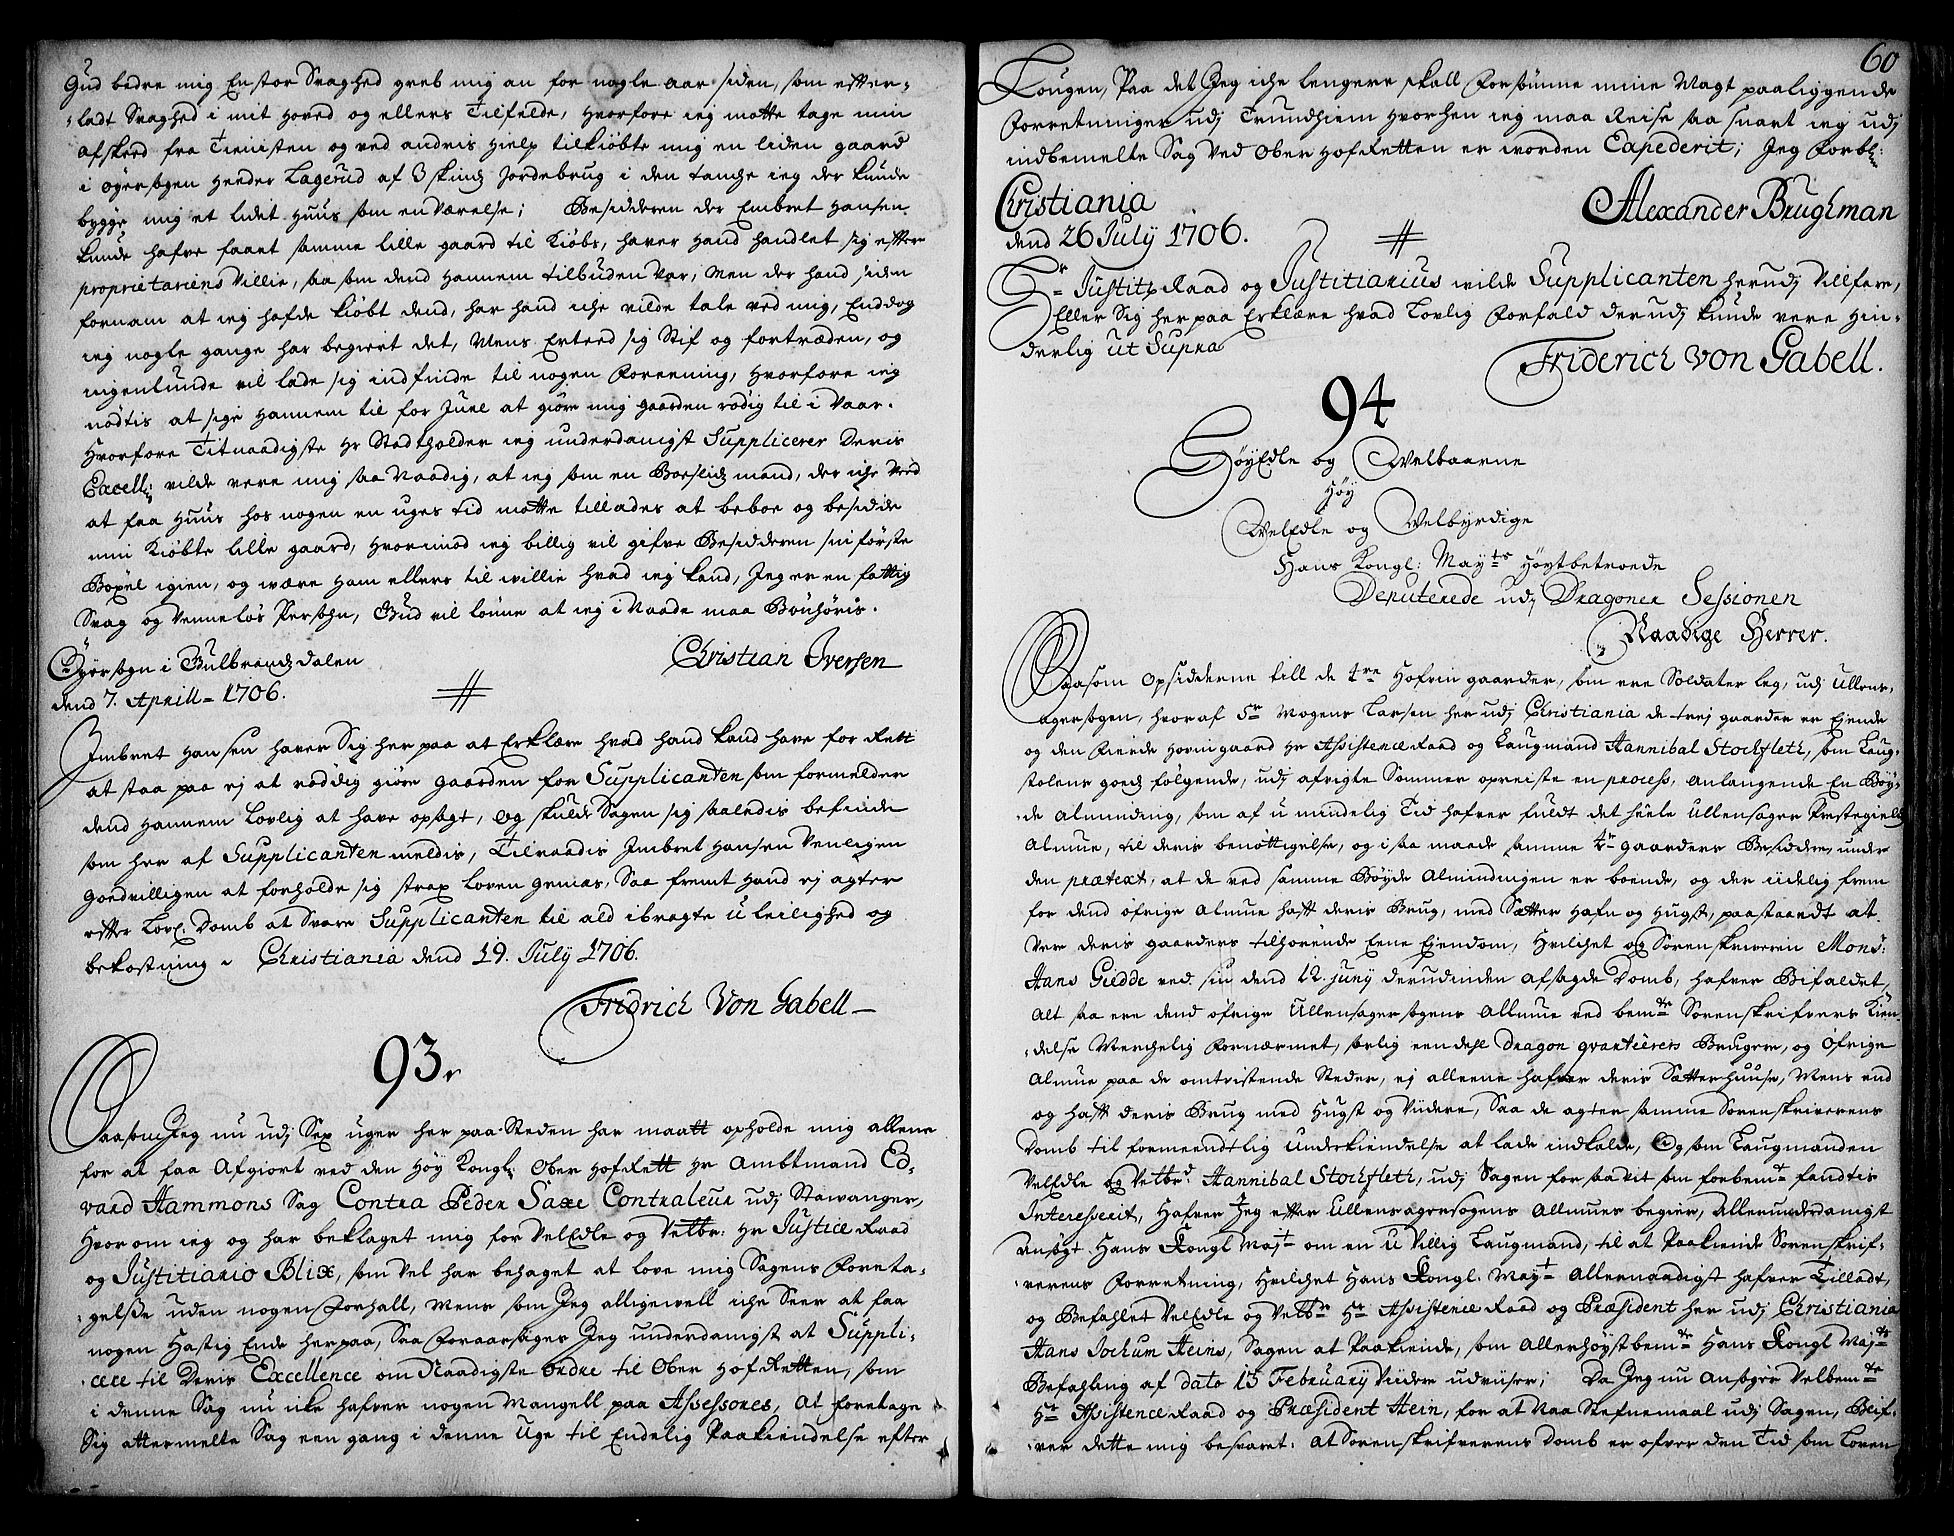 Gud bedre mig En stor Svaghed greb mig an for nogle aar siden, som effter-
ladt Svaghed i mit Hoved og ellers Tilfelde, Hvorfore ieg motte tage min
afskeed fra Tienisten og ved andris Hielp tilkiøbte mig en liden gaard
i øgersogen Heeder Lagerud af 3 skind Jordebrug i den tancke ieg der kunde
bygge mig et lidet Huus som en Værelse; Besidderen der Embret Hansen
kunde hafve faaet samme lille gaard til Kiøbs, haver Hand handlet sig effter
proprietariens Villie, saa som dend Hannem tilbuden var, Men der hand siden
fornam at ieg hafde kiøbt dend, har hand iche vilde tale ved mig, Enddog
ieg nogle gange har begiert det, Mens Erteed sig Stif og fortræden, og
ingenlunde vil lade sig indfinde til nogen Foreening, Hvorfore ieg
nødtis at sige Hannem til for Juel at giøre mig gaarden rødig til i Vaar.
Hvorfore Titnaadigste Hr Stadtholder ieg underdanigst Supplicerer Deris
Excell: vilde vere mig saa Naadig, at ieg som en Boeslid mand, der iche Ved
at faa Huus hos nogen en uges tid motte tillades at beboe og besidde
min Kiøbte lille gaard, Hvorimod ieg billig vil gifve Besidderen sin første
Boxel igien, og være Ham ellers til willie hvad ieg kand, Jeg er en fattig
Svag og Venneløs Persohn, Gud vil lønne at ieg i Naade maa Bønhøris.
Øyersogn i Gulbrandsdalen
Christian Iversen
dend 7. Aprill 1706.
Imbret Hansen haver Sig her paa at Erklære hvad hand kand have for Rett
at staa paa ej at røddig giøre gaarden for Supplicanten som formelder
dend Hannem Lovlig at have opsagt, og skulde Sagen sig saaledis befinde
som her af Supplicanten meldis, Tilraadis Imbret Hansen Venligen
Goedvilligen at forholde sig strax loven gemæs, Saa fremt Hand ej agter
effter Lovl. Domb at Svare Supplicanten til ald ibragte uleilighed og
bekostning Christiania dend 19. July 1706.
Fridrich Von Gabell
93.
Saasom Jeg nu udj Sex uger her paa Steden har maatt opholde mig allene
for at faa Afgiort ved den Høy Kongl: Ober Hof Rett Hr Ambtmand Ed-
vard Hammons Sag Contra Peder Saxe Contraleur udj Stawanger,
Hvor om ieg og har beklaget mig for VelEdle og Velbr: Hr Justice Raad
og Justitiario Blix, som Vel har behaget at love mig Sagens Foreta-
gelsse uden nogen Forhall, Mens som Jeg alligewell iche Seer at faa
nogen Hastig Ende herpaa, Saa Foraarsages Jeg underdanigst at Suppli-
cere til Deris Excellence om Naadigste ordre til Ober Hof Retten, som
i denne Sag nu icke hafver nogen Mangell paa Assessores, at foretage
Sig attermelte Sag een gang i denne Uge til Endelig Paakiendelse effter
60
Lougen, Paa det Jeg iche lengere skall Forsømme mine Magt paaliggende
Forretninger udj Trundhiem hvorhen ieg maa Reise saa snart ieg udj
indbemelte Sag Ved Ober Hof Retten er worden Expederit; Jeg Forbl:
Christiania
Alexander Brughman
dend 26 July 1706.
Hr Justitz Raad og Justitiarius wilde Supplicanten herudj Villfare,
Eller Sig her paa Erklære hvad Lovlig Forfald derudj kunde vere Hin-
derlig ut Supra
Friderich von Gabell.
94
HøyEdle og Welbaarne
Høy
WelEdle og Velbyrdige
Hans Kongl: Mayts Høytbetroede
Deputerede udj Dragoner Sessionen
Naadige Herrer.
Saasom Opsidderne till de 4re Hofvin gaarder, som ere Soldater leg, udj Ullens-
agersogen, hvor af Sr Mogens Larsen her udj Christiania de trej gaarder er Ejende
og den Fierde Hovin gaard Hr Assistence Raad og Laugmand Hannibal Stockfleth, som Laug-
stolens goeds følgende, udj afvigte Sommer opreiste en process, anlangende En Bøy-
de Alminding, som af u mindelig Tid hafver fuldt det heele Ullensager Prestegields
Almue, til deris benøttigelse, og i saa maade samme 4r gaarders Besiddere, under
den prætext, at de ved samme Bøyde Almindingen er boende, og der iidelig frem
for dend øfrige Almue hafft deris Brug, med Sætter Hafn og Hugst, paastaaendt at
Vere deris gaarders tilhørende Eene Ejendom, Hvilchet og Sorenskriveren Mons:
Hans Giedde ved sin dend 12. juny derudinden afsagde Domb, hafver Bifaldet,
Alt saa ere dend øfrige Ullensager sogens Allmue ved bemte Sorenskrifvers Kien-
delse Merchelig Fornærmet, særlig een dehl Dragon qvarteerers Brugere, og Øfrige
Almue paa de omtvistende Steder, ej alleene hafver deris Sætterhuuse, Mens end
og hafft deris Brug med Hugst og Viidere, Saa de agter samme Sorenskriverens
Domb til formeendtlig Underkiendelse at lade indkalde, Og som Laugmanden
VelEdle og Velbrd. Hannibal Stockfleth, udj Sagen for saavit som forbemt fandtis
Interesserit, Hafver Jeg efter Ullensagersogens Allmues begier, allerunderdanigst
ansøgt Hans Kongl Mayt om en U Villig Laugmand, til at Paakiende Sorenskrif-
verens Forretning, Hvilchet Hans Kongl. Mayt Allernaadigst hafver Tilladt,
og Befahlet VelEdle og Velbr Hr Assistence Raad og Præsident her udj Christiania
Hans Jochum Heins, Sagen at Paakiende, som Allerhøystbemte Hans Kongl Mayts
Befahling af dato 15 February Viidere udviiser; Da Jeg nu Ansøger Velbemte
Hr Assistence Raad og Præsident Hein, for at Naa Stefnemaal udj Sagen, Blif-
ver dette mig besvaret: at Sorenskrifverens Domb er ofver den Tid som Loven